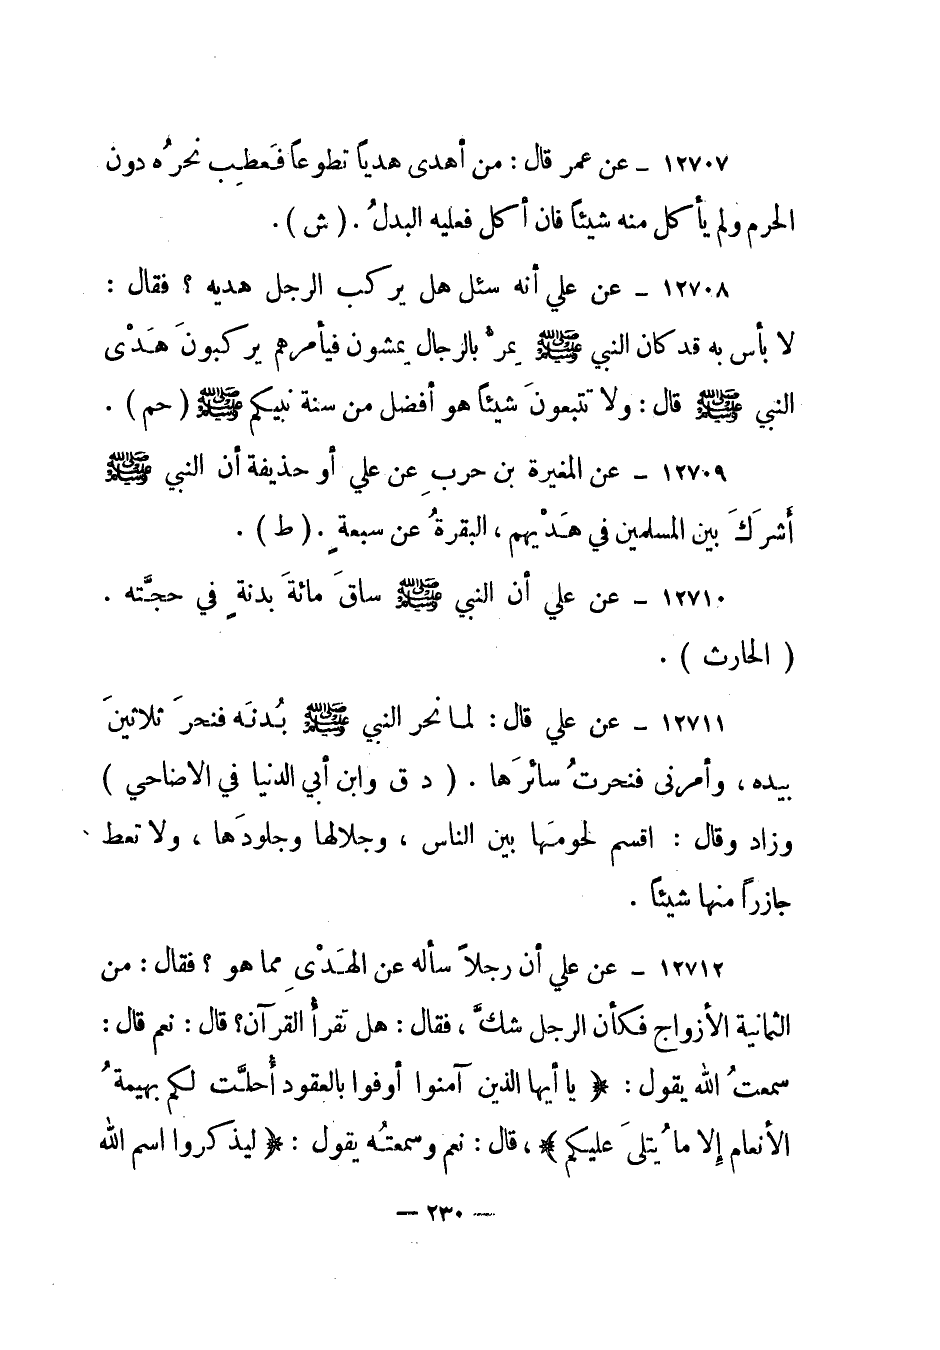 ١٢٧٠٧ ـ عن عمر قال : من أهدى هدياً تطوعاً فَعطِب نحرُه دون
الحرم ولم يأكل منه شيئاً فان أكل فعليه البدلُ . ( ش ) .
١٢٧٠٨ ـ عن علي أنه سئل هل يركب الرجل هديه ؟ فقال :
لا بأس به قد كان النبي ﷺ يمرُّ بالرجال يمشون فيأمرهم يركبونَ هَدْى
النبي ﷺ قال : ولا تتبعونَ شيئاً هو أفضل من سنة نبيكم ﷺ ( حم ) .
١٢٧٠٩ ـ عن المغيرة بن حربِ عن علي أو حذيفة أن النبي ﷺ
أَشركَ بين المسلمين في هَدْيهم ، البقرةُ عن سبعةٍ . ( ط ) .
١٢٧١٠ ـ عن علي أن النبي ﷺ ساقَ مائةَ بدنةٍ في حجَّته .
( الحارث ) .
١٢٧١١ ـ عن علي قال : لما نحر النبي ﷺ بُدنَه فنحرَ ثلاثينَ
بيده ، وأمرنى فنحرتُ سائرَها . ( د ق وابن أبي الدنيا في الاضاحي )
وزاد وقال : اقسم لحومَها بين الناس ، وجلالها وجلودَها ، ولا تعط
جازراً منها شيئاً .
١٢٧١٢ ـ عن علي أن رجلاً سأله عن الهَدْىِ مما هو ؟ فقال : من
الثمانية الأزواج فكأن الرجل شكَّ ، فقال : هل تقرأُ القرآن؟ قال : نعم قال :
سمعتُ الله يقول : ﴿ يا أيها الذين آمنوا أوفوا بالعقود أُحلَّت لكم بهيمةُ
الأنعام إلا ما يُتلىَ عليكم ﴾ ، قال : نعم وسمعتُه يقول : ﴿ ليذكروا اسم الله
— ٢٣٠ —